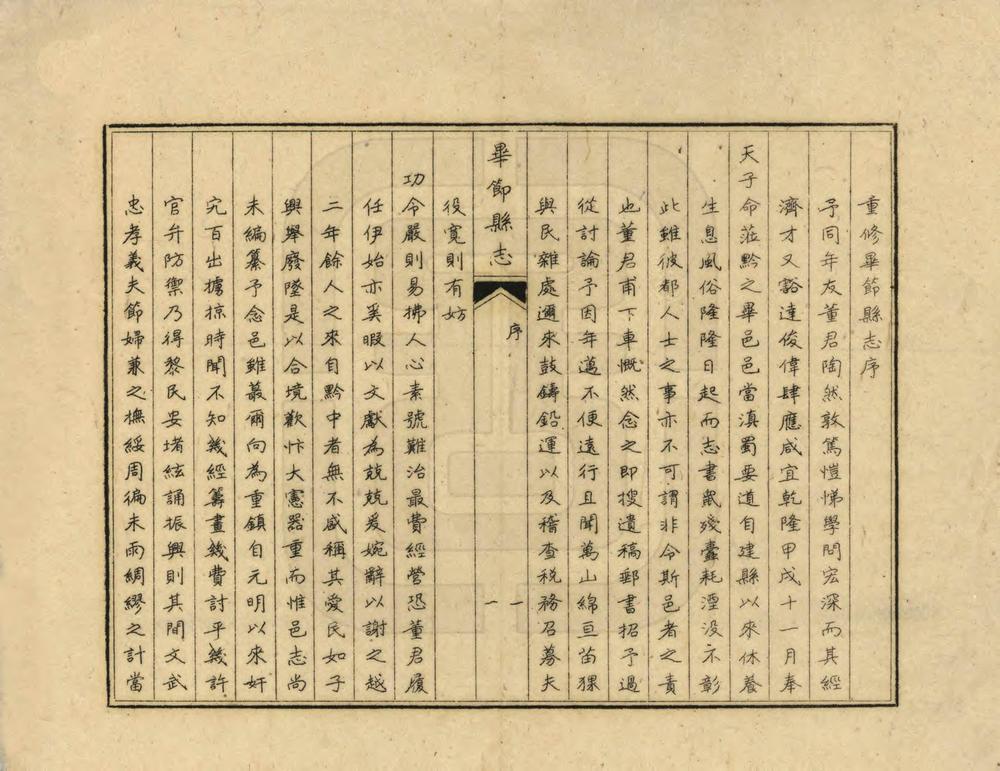 重修畢節縣志序
予同年友董君陶然敦篤愷悌學問宏深而其經
濟才又豁達俊偉肆應咸宜乾隆甲戌十一月奉
天子命蒞黔之畢邑邑當滇蜀要道自建縣以來休養
生息風俗隆隆日起而志書鼠殘蠹耗湮沒不彰
此雖彼都人士之事亦不可謂非令斯邑者之責
也董君甫下車慨然念之即搜遺稿郵書招予過
從討論予因年邁不便遠行且聞萬山綿亘苗猓
與民雜處邇來鼓鑄鉛運以及稽查稅務召募夫
畢節縣志
序
一一
役寬則有妨
功令嚴則易拂人心素號難治最費經營恐董君履
任伊始亦奚暇以文獻為兢兢爰婉辭以謝之越
二年餘人之來自黔中者無不感稱其愛民如子
興舉廢墜是以合境歡忭大憲器重而惟邑志尚
未編纂予念邑雖蕞爾向為重鎮自元明以來奸
宄百出擄掠時聞不知幾經籌畫幾費討平幾許
官弁防禦乃得黎民安堵絃誦振興則其間文武
忠孝義夫節婦兼之撫綏周徧未雨綢繆之計當